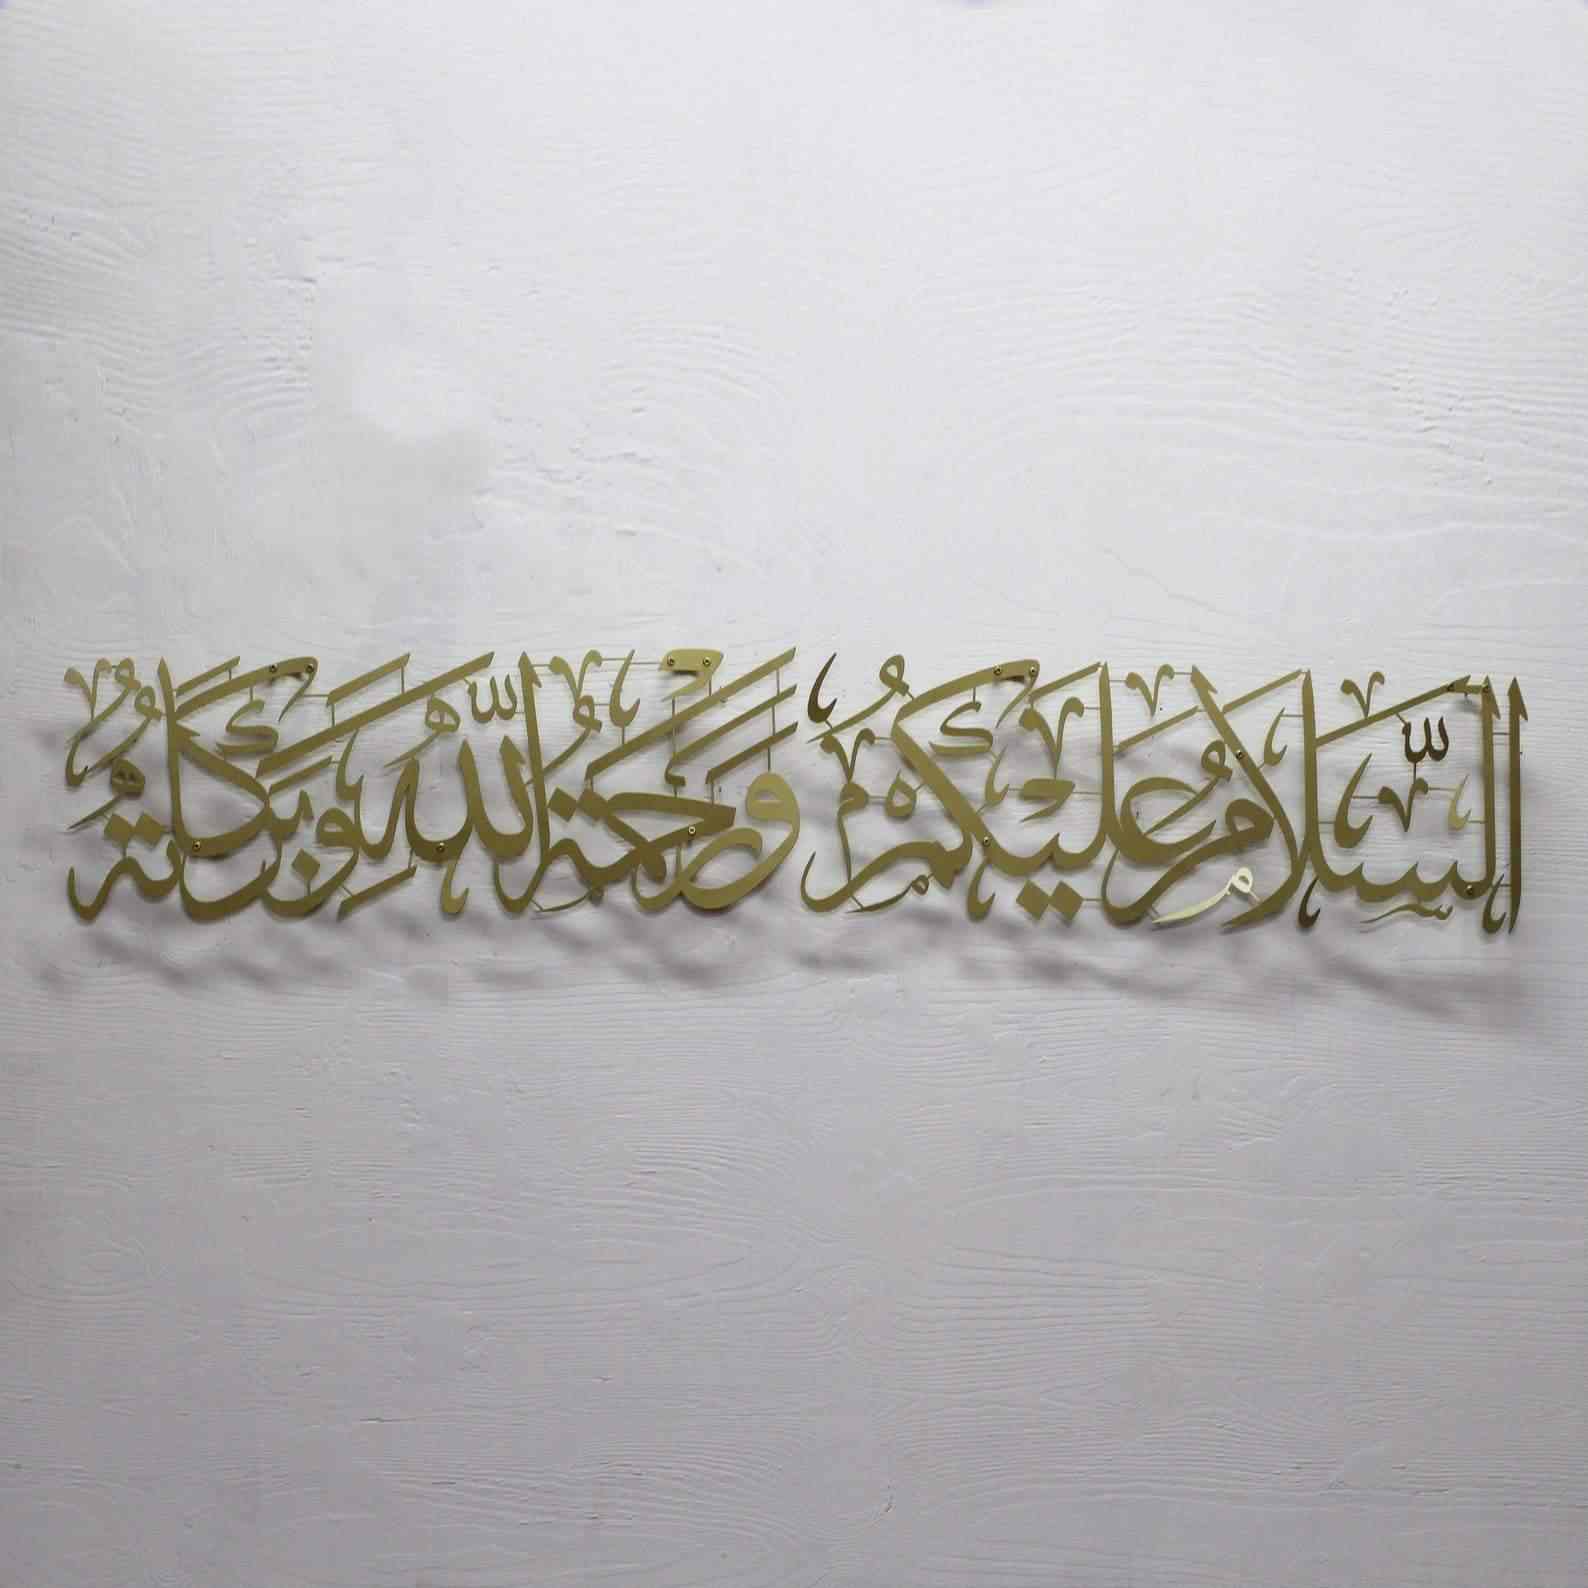 السَّلَامُ عَلَيْكُمْ وَرَحْمَةُ اللّٰهِ وَبَرَكَاتُهُ